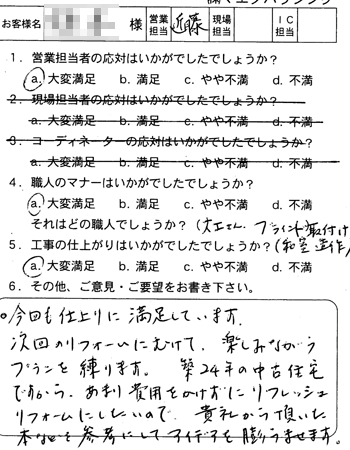 お客様名 様 営業担当 近藤 現場担当 IC担当
1．営業担当者の応対はいかがでしたでしょうか？
a. 大変満足 b. 満足 c. やや不満 d. 不満
2．現場担当者の応対はいかがでしたでしょうか？
a. 大変満足 b. 満足 c. やや不満 d. 不満
3．コーディネーターの応対はいかがでしたでしょうか？
a. 大変満足 b. 満足 c. やや不満 d. 不満
4．職人のマナーはいかがでしたでしょうか？
a. 大変満足 b. 満足 c. やや不満 d. 不満
それはどの職人でしょうか？（大工さん、ブラインド取付け
5．工事の仕上がりはいかがでしたでしょうか？（和室造作）
a. 大変満足 b. 満足 c. やや不満 d. 不満
6．その他、ご意見・ご要望をお書き下さい。
○今回も仕上りに満足しています。
次回のリフォームにむけて、楽しみながら
プランを練ります。 築24年の中古住宅
ですから、あまり費用をかけずにリフレッシュ
リフォームにしたいので、貴社から頂いた
本などを参考にしてアイデアを膨らませます。